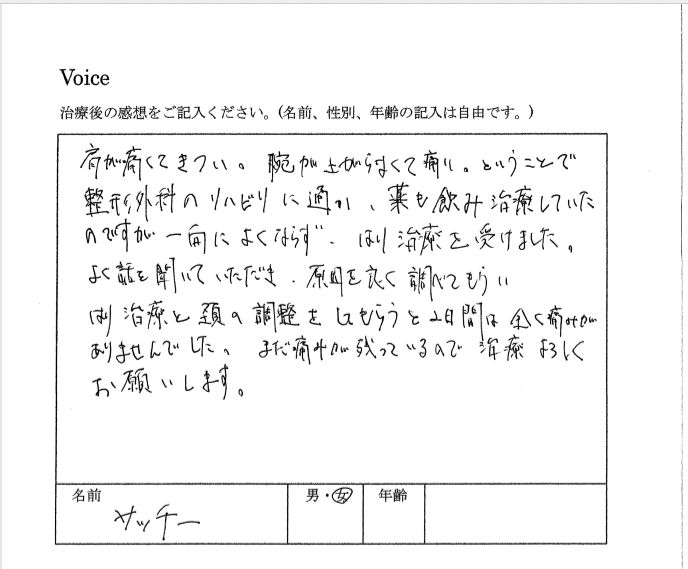 Voice
治療後の感想をご記入ください。(名前、性別、年齢の記入は自由です。)
肩が痛くてきつい。腕が上がらなくて痛い。ということで
整形外科のリハビリに通い、薬も飲み治療していた
のですが一向によくならず、はり治療を受けました。
よく話を聞いていただき、原因を良く調べてもらい
はり治療と頚の調整をしてもらうと2日間は全く痛みが
ありませんでした。まだ痛みが残っているので治療よろしく
お願いします。
名前 サッチー 男・女 年齢